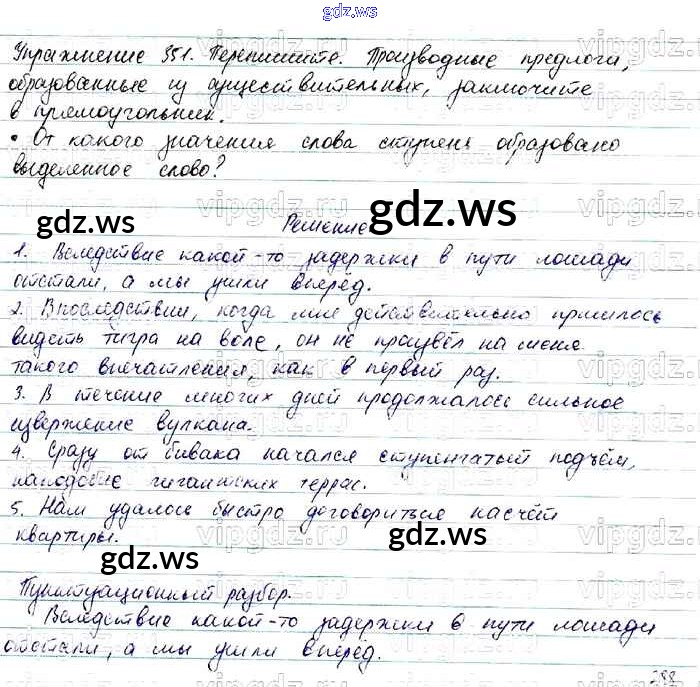 gdz.ws
Упражнение 351. Перепишите. Производные предлоги,
образованные из существительных, заключите
в прямоугольник.
• От какого значения слова ступень образовано
выделенное слово?
gdz.ws
gdz.ws
Решение
1. Вследствие какой-то задержки в пути лошади
отстали, а мы ушли вперёд.
2. Впоследствии, когда мне действительно пришлось
видеть тигра на воле, он не произвёл на меня
такого впечатления, как в первый раз.
3. В течение многих дней продолжалось сильное
извержение вулкана.
4. Сразу от бивака начался ступенчатый подъём,
наподобие гигантских террас.
5. Нам удалось быстро договориться насчёт
квартиры.
gdz.ws
gdz.ws
Пунктуационный разбор.
Вследствие какой-то задержки в пути лошади
отстали, а мы ушли вперёд.
288